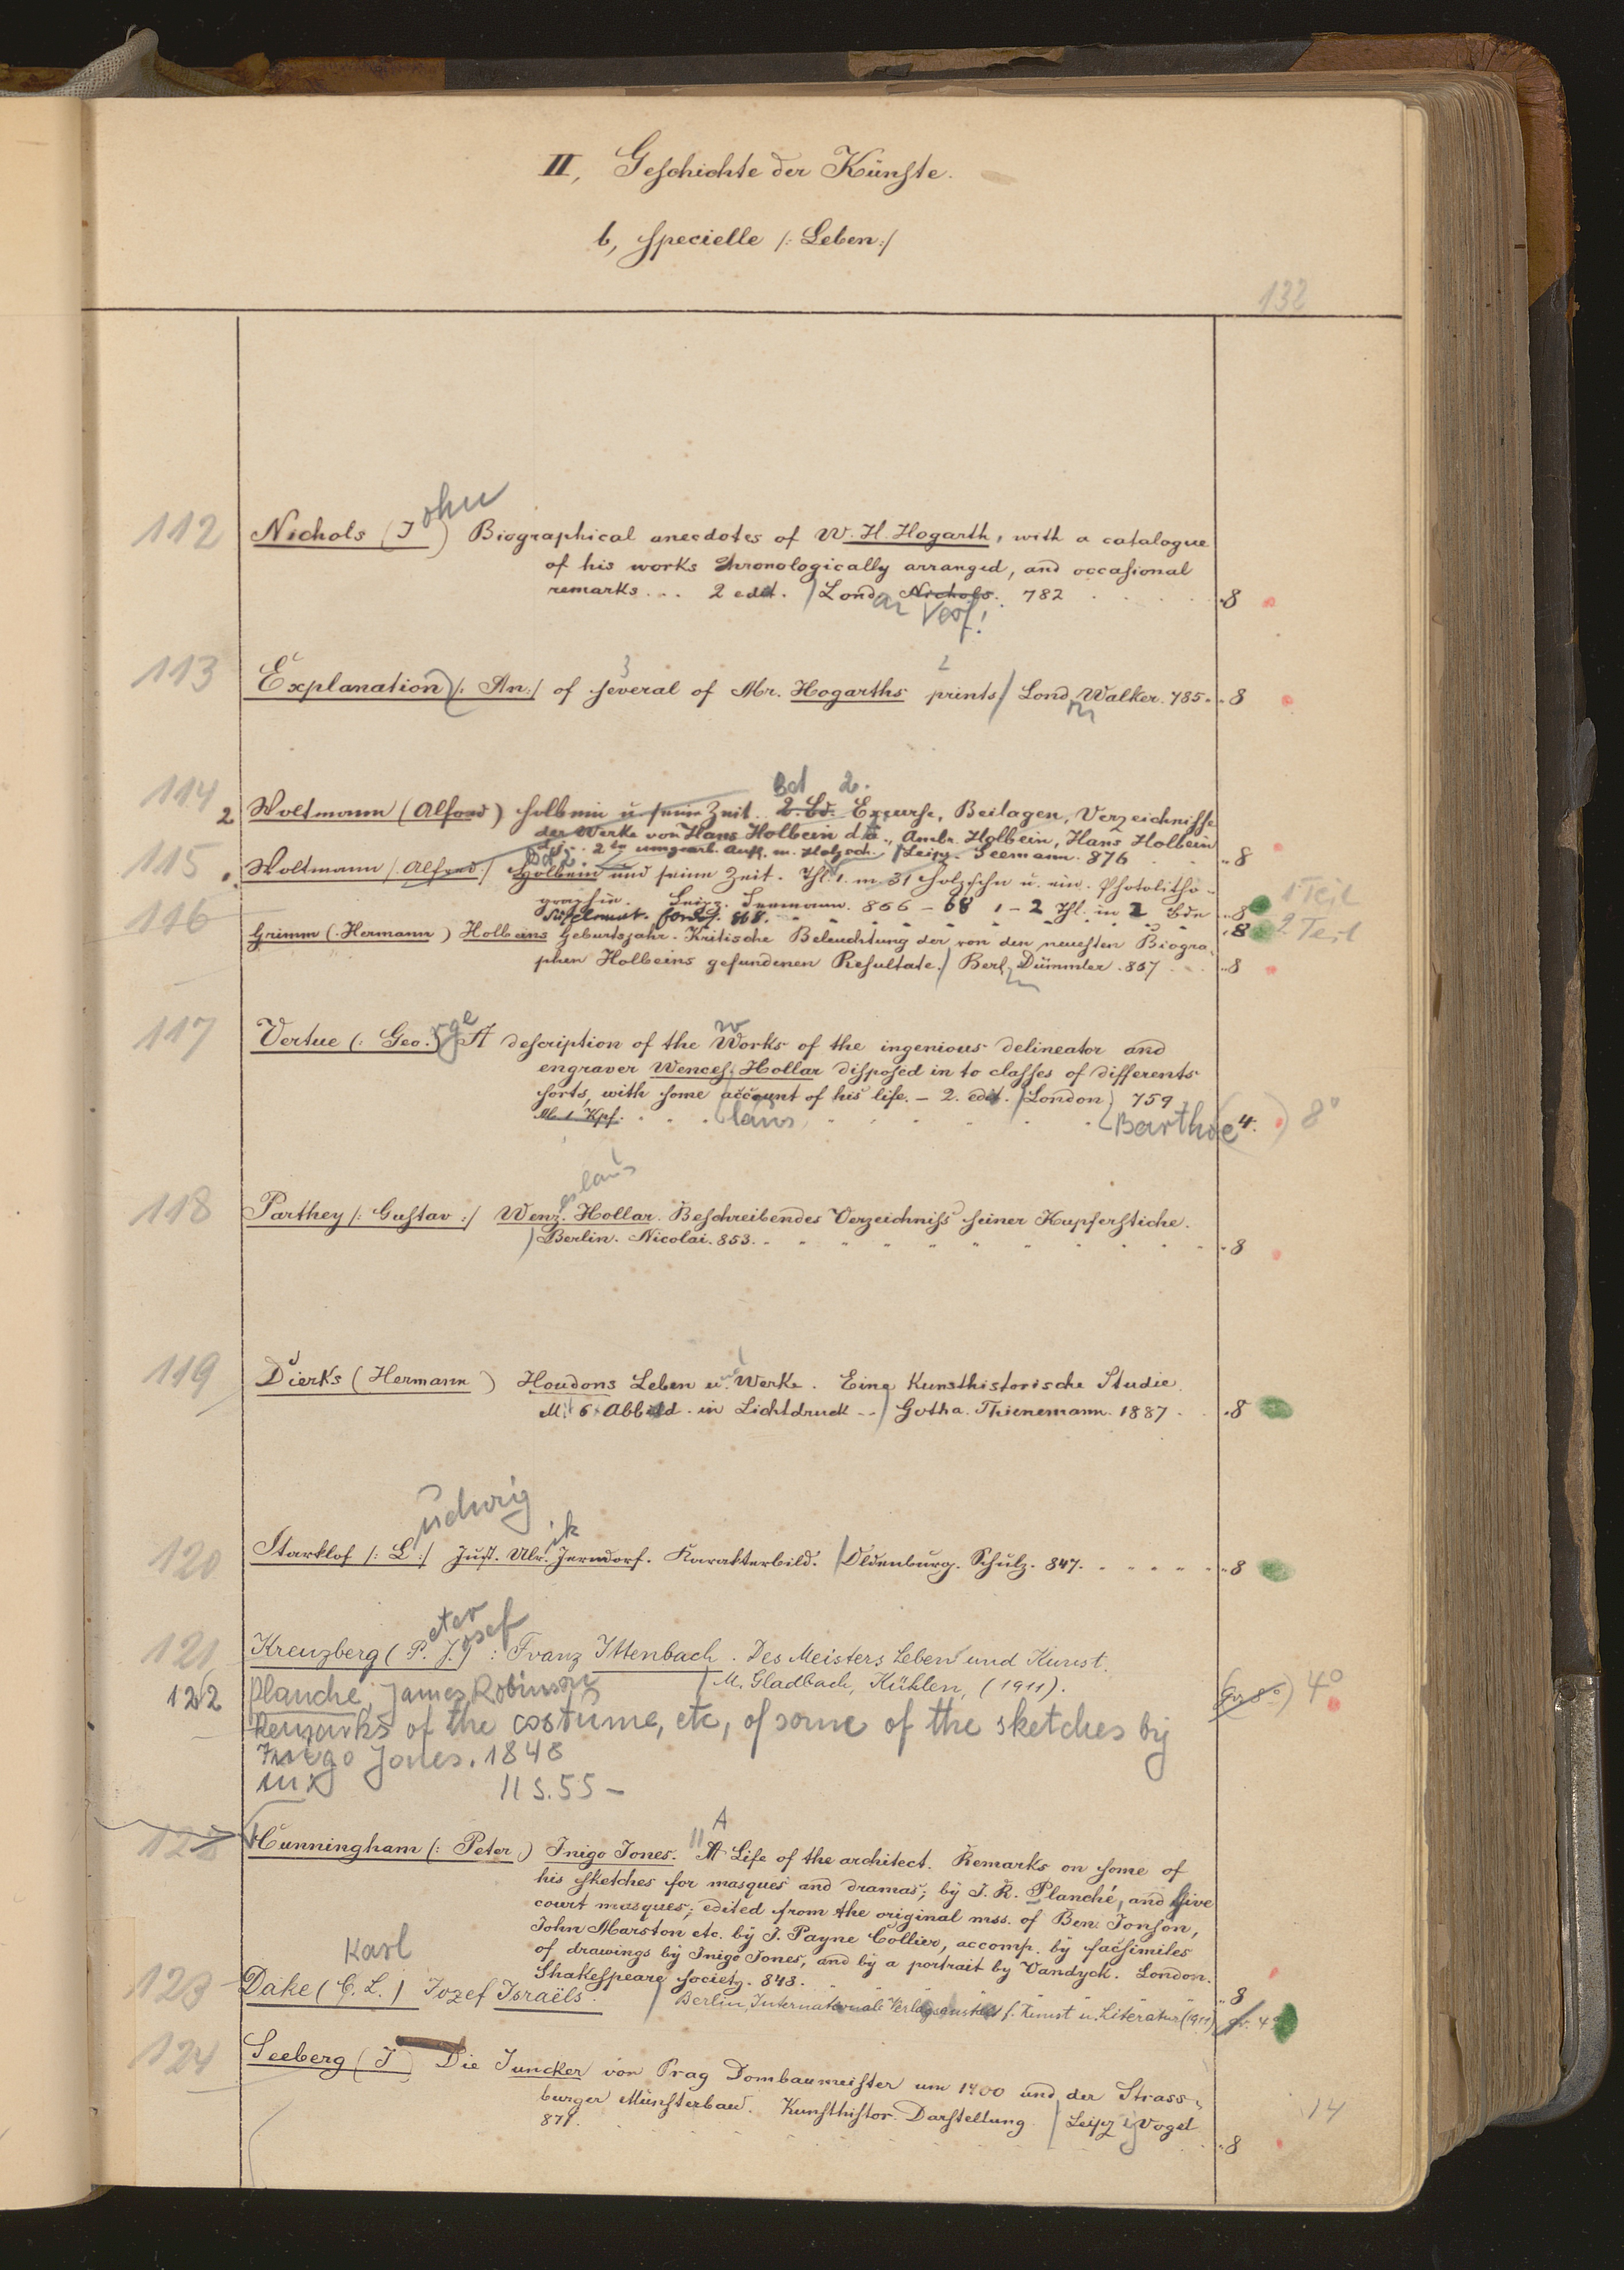 II, Geschichte der Künste.
b, specielle /: Leben :/
132
ohn
112 Nichols (J ) Biographical anecdotes of W. H. Hogarth, with a catalogue
of his works chronologically arranged, and occasional
remarks ... 2 edit. / Lond. Nichols. 782 . . . . 8
Verf!
3 2
113 Explanation /: An :/ of several of Mr. Hogarths prints / Lond Walker. 785. 8
on
Bd 2.
114 2 Woltmann (Alfred) Holbein u. seine Zeit. 2. Bd. Excurse, Beilagen, Verzeichnisse
der Werke von Hans Holbein d. ä., Ambr. Holbein, Hans Holbein
d. j. 2te umgearb. Aufl. m. Holzsch. / Leipz. Seemann. 876 8
115 1. Woltmann /: Alfred :/ Holbein und seine Zeit. Thl. 1. m. 31 Holzschn u. ein. Photolitho-
graphie. Leipz. Seemann. 866 - 68 1 - 2 Thl. in 2 Bde 8 1 Teil
Supplement. 868. 8 2 Teil
116 Grimm (: Hermann ) Holbeins Geburtsjahr. Kritische Beleuchtung der von den neuesten Biogra-
phen Holbeins gefundenen Resultate. / Berl. Dümmler. 867 . . 8
rge w
117 Vertue (: Geo. :) A description of the Works of the ingenious delineator and
engraver Wences. Hollar disposed in to classes of differents
sorts, with some account of his life. - 2. edit. / London 759
M. 1 Kpf. . . . laus . . . . . Barthoe 4. ) 8°
eslaus
118 Parthey /: Gustav :/ Wenz. Hollar. Beschreibendes Verzeichniss seiner Kupferstiche.
/ Berlin. Nicolai. 853. 8
119 Dierks (Hermann ) Houdons Leben u. Werke. Eine Kunsthistorische Studie.
M. 6 Abbild. in Lichtdruck -- / Gotha. Thienemann. 1887 . 8
udwig
ik
120 Starklof /: L :/ Just. Ulr. Jerndorf. Karakterbild. / Oldenburg. Schulz. 847. 8
eter
osef
121 Kreuzberg ( P. J. ) : Franz Ittenbach. Des Meisters Leben und Kunst.
/ M. Gladbach, Kühlen, (1911). (Gr 8°) 4°
122 Planché, James Robinson
Remarks of the costume, etc, of some of the sketches by
Inigo Jones. 1848
in: 11 S. 55 -
A
122 Cunningham (: Peter ) Inigo Jones. A Life of the architect. Remarks on some of
his sketches for masques and dramas; by J. R. Planché, and five
court masques; edited from the original mss. of Ben. Jonson,
John Marston etc. by J. Payne Collier, accomp. by facsimiles
of drawings by Inigo Jones, and by a portrait by Vandyck. London.
Shakespeare society. 848. 8
Karl
123 Dake ( C. L. ) Jozef Israëls. / Berlin, Internationale Verlagsanstalt f. Kunst u. Literatur (1911) gr. 4°
124 Seeberg ( J ) Die Juncker von Prag Dombaumeister um 1400 und der Strass-
burger Münsterbau. Kunsthistor. Darstellung / Leipzig Vogel
871. 8
14